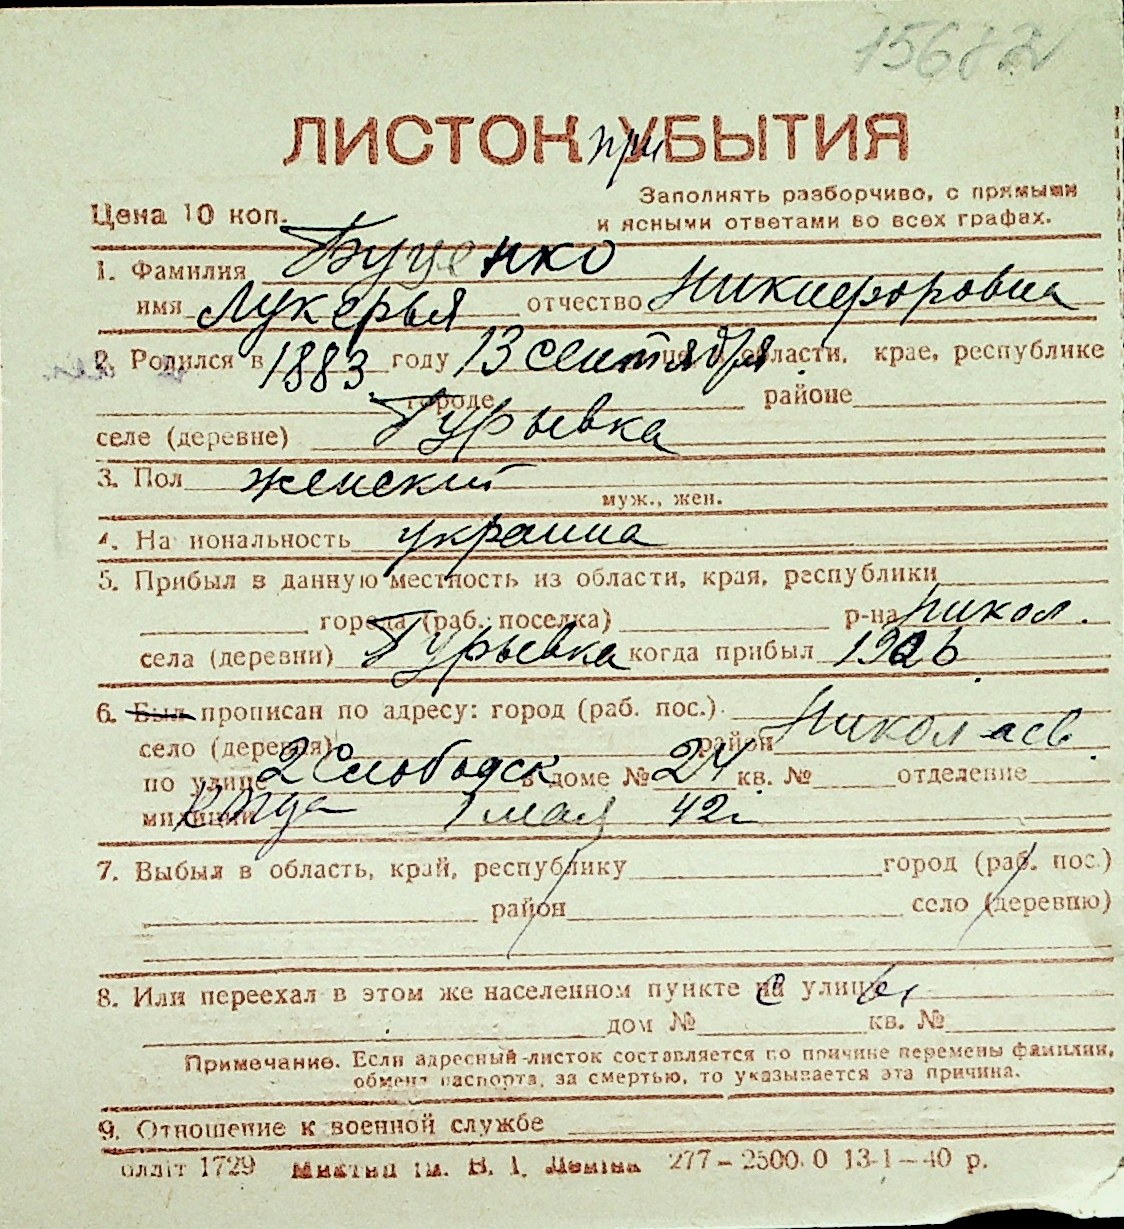 ЛИСТОК при УБЫТИЯ
Заполнять разборчиво, с прямыми
Цена 10 коп.
и ясными ответами во всех графах.
1. Фамилия Буценко
имя Лукерья отчество Никифоровна
2. Родился в 1883 году 13 сентября области, крае, республике
городе районе
селе (деревне) Гурьевка
3. Пол женский
муж., жен.
4. На иональность украина
5. Прибыл в данную местность из области, края, республики
города (раб. поселка) р-на Никол.
села (деревни) Гурьевка когда прибыл 1926
6. Был прописан по адресу: город (раб. пос.)
село (деревня) район Николаев
по улице 2 Слободск в доме № 24 кв. № отделение
милиции когда 1 мая 42 г.
7. Выбыл в область, край, республику город (раб. пос.)
район село (деревню)
8. Или переехал в этом же населенном пункте на улицу
дом № кв. №
Примечание. Если адресный листок составляется по причине перемены фамилии,
обмена паспорта, за смертью, то указывается эта причина.
9. Отношение к военной службе
олліт 1729 ім. В. І. Леніна 277–2500.0 13-1–40 р.